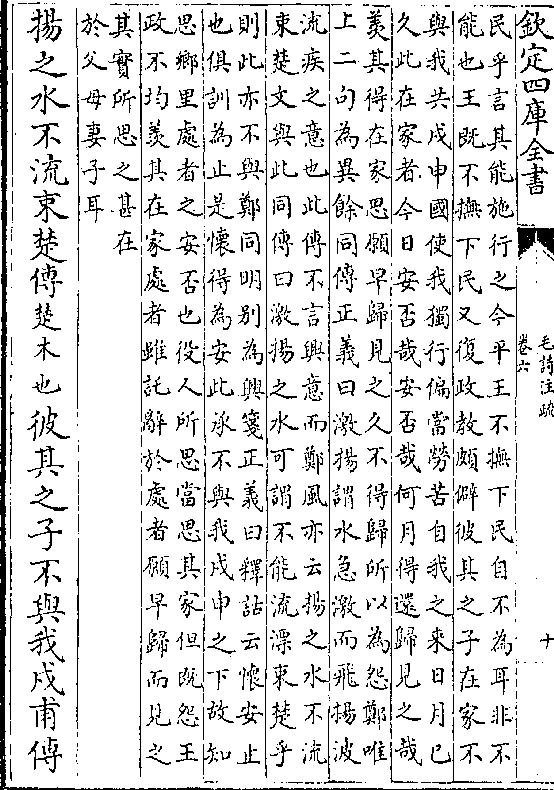 欽定四庫全書
毛詩注疏
卷六
十
民乎言其能施行之今平王不撫下民自不為耳非不
能也王既不撫下民又復政教頗僻彼其之子在家不
與我共戍申國使我獨行偏當勞苦自我之來日月已
久此在家者今日安否哉安否哉何月得還歸見之哉
羡其得在家思願早歸見之久不得歸所以為怨鄭唯
上二句為異餘同傳正義曰激揚謂水急激而飛揚波
流疾之意也此傳不言興意而鄭風亦云揚之水不流
束楚文與此同傳曰激揚之水可謂不能流漂束楚乎
則此亦不與鄭同明别為興箋正義曰釋詁云懷安止
也俱訓為止是懷得為安此承不與我戍申之下故知
思鄉里處者之安否也役人所思當思其家但既怨王
政不均羡其在家處者雖託辭於處者願早歸而見之
其實所思之甚在
於父母妻子耳
揚之水不流束楚傳楚木也彼其之子不與我戍甫傳